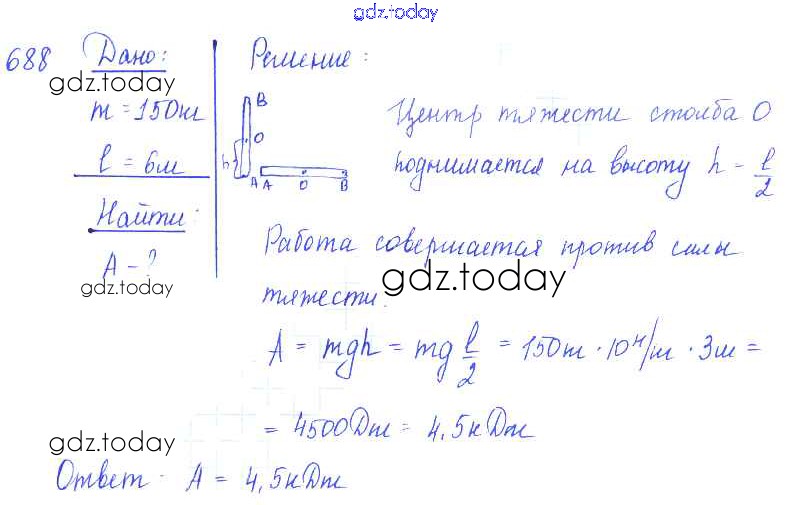 gdz.today
688 Дано:
gdz.today
m = 150кг
l = 6м
Найти:
A - ?
gdz.today
Решение:
B
O
h
A
A O B
Центр тяжести столба O
поднимается на высоту h - l/2
Работа совершается против силы
gdz.today
тяжести.
A = mgh = mg l/2 = 150кг · 10 Н/кг · 3м =
= 4500Дж = 4,5кДж
gdz.today
Ответ: A = 4,5кДж